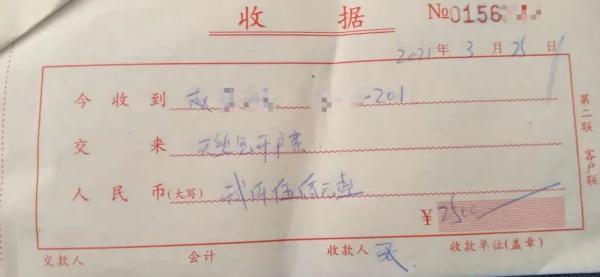 收据
№0156
2021年3月25日
今收到 -201
交来 天然气开户费
人民币(大写) 贰仟伍佰元整
¥2500
交款人 会计 收款人 收款单位(盖章)
第二联 客户联